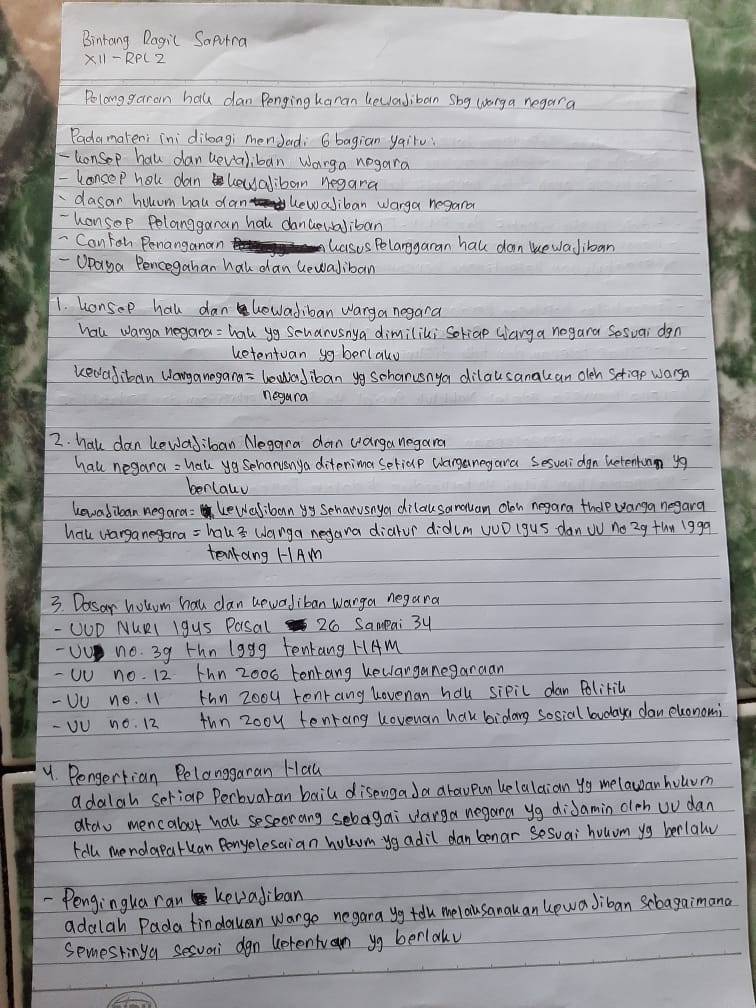 Bintang Ragil Saputra
XII - RPL 2
Pelanggaran hak dan Pengingkaran kewajiban sbg warga negara
Pada materi ini dibagi menjadi 6 bagian yaitu:
- konsep hak dan kewajiban warga negara
- konsep hak dan kewajiban negara
- dasar hukum hak dan kewajiban warga negara
- konsep Pelanggaran hak dan kewajiban
- Contoh Penanganan kasus Pelanggaran hak dan kewajiban
- Upaya Pencegahan hak dan kewajiban
1. konsep hak dan kewajiban warga negara
hak warga negara = hak yg seharusnya dimiliki setiap warga negara sesuai dgn
ketentuan yg berlaku
kewajiban warganegara = kewajiban yg seharusnya dilaksanakan oleh setiap warga
negara
2. hak dan kewajiban Negara dan warga negara
hak negara = hak yg seharusnya diterima setiap warganegara sesuai dgn ketentuan yg
berlaku
kewajiban negara = kewajiban yg seharusnya dilaksanakan oleh negara thdp warga negara
hak warganegara = hak2 warga negara diatur didlm UUD 1945 dan UU no 39 thn 1999
tentang HAM
3. Dasar hukum hak dan kewajiban warga negara
- UUD NKRI 1945 Pasal 26 sampai 34
- UU no. 39 thn 1999 tentang HAM
- UU no. 12 thn 2006 tentang kewarganegaraan
- UU no. 11 thn 2004 tentang kovenan hak sipil dan Politik
- UU no. 12 thn 2004 tentang kovenan hak bidang sosial budaya dan ekonomi
4. Pengertian Pelanggaran Hak
adalah setiap Perbuatan baik disengaja ataupun kelalaian yg melawan hukum
atau mencabut hak seseorang sebagai warga negara yg dijamin oleh UU dan
tdk mendapatkan Penyelesaian hukum yg adil dan benar sesuai hukum yg berlaku
- Pengingkaran kewajiban
adalah Pada tindakan warga negara yg tdk melaksanakan kewajiban sebagaimana
semestinya sesuai dgn ketentuan yg berlaku